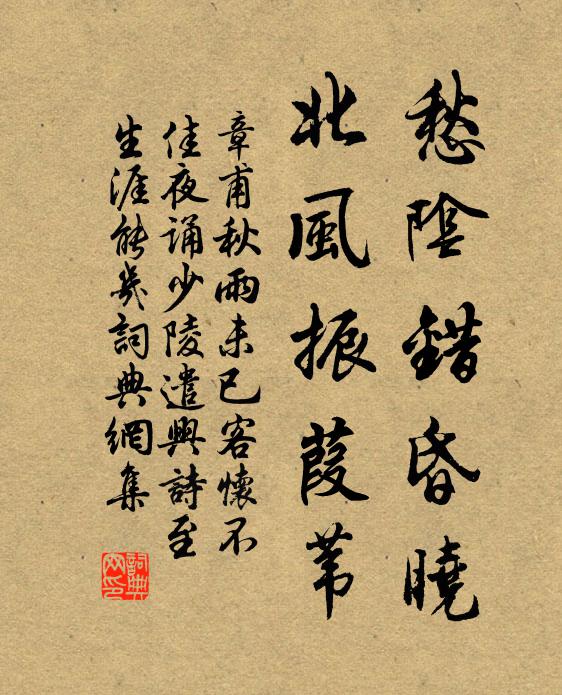 愁陰錯昏曉
北風振葭苇
章甫秋雨未已客懷不
佳夜誦少陵遣興詩至
生涯能幾詞典網集
詞典网印